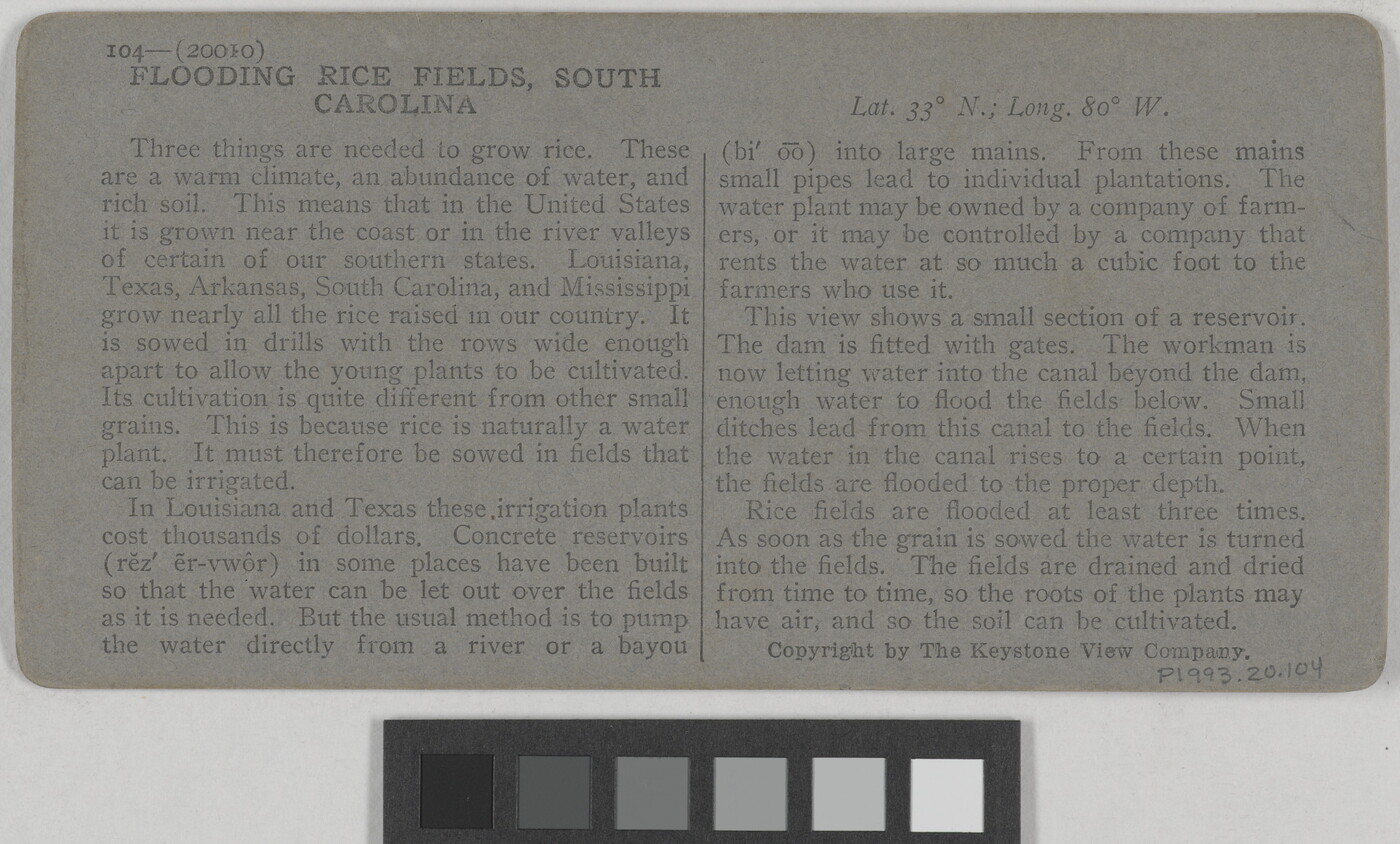 104—(20010)
FLOODING RICE FIELDS, SOUTH
CAROLINA
Three things are needed to grow rice. These
are a warm climate, an abundance of water, and
rich soil. This means that in the United States
it is grown near the coast or in the river valleys
of certain of our southern states. Louisiana,
Texas, Arkansas, South Carolina, and Mississippi
grow nearly all the rice raised in our country. It
is sowed in drills with the rows wide enough
apart to allow the young plants to be cultivated.
Its cultivation is quite different from other small
grains. This is because rice is naturally a water
plant. It must therefore be sowed in fields that
can be irrigated.
In Louisiana and Texas these irrigation plants
cost thousands of dollars. Concrete reservoirs
(rĕz′ ẽr-vwôr) in some places have been built
so that the water can be let out over the fields
as it is needed. But the usual method is to pump
the water directly from a river or a bayou
Lat. 33° N.; Long. 80° W.
(bi′ o͞o) into large mains. From these mains
small pipes lead to individual plantations. The
water plant may be owned by a company of farm-
ers, or it may be controlled by a company that
rents the water at so much a cubic foot to the
farmers who use it.
This view shows a small section of a reservoir.
The dam is fitted with gates. The workman is
now letting water into the canal beyond the dam,
enough water to flood the fields below. Small
ditches lead from this canal to the fields. When
the water in the canal rises to a certain point,
the fields are flooded to the proper depth.
Rice fields are flooded at least three times.
As soon as the grain is sowed the water is turned
into the fields. The fields are drained and dried
from time to time, so the roots of the plants may
have air, and so the soil can be cultivated.
Copyright by The Keystone View Company.
P1993.20.104